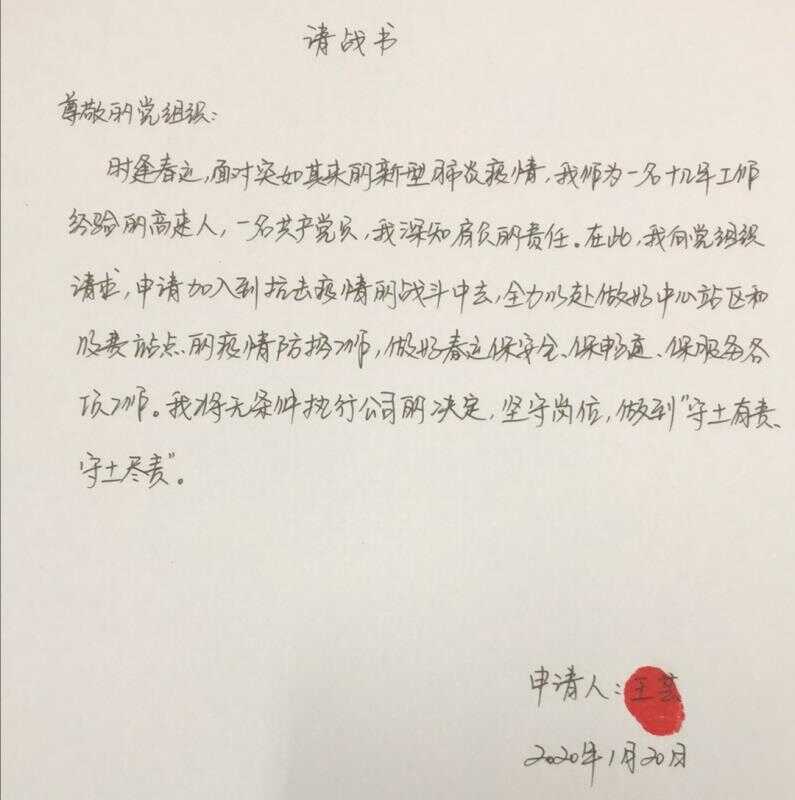 请战书
尊敬的党组织：
时逢春运，面对突如其来的新型肺炎疫情，我作为一名十几年工作
经验的高速人，一名共产党员，我深知肩负的责任。在此，我向党组织
请求，申请加入到抗击疫情的战斗中去，全力以赴做好中心站区和
收费站点的疫情防护工作，做好春运保安全、保畅通、保服务各
项工作。我将无条件执行公司的决定，坚守岗位，做到“守土有责、
守土尽责”。
申请人：王芸
2020年1月20日